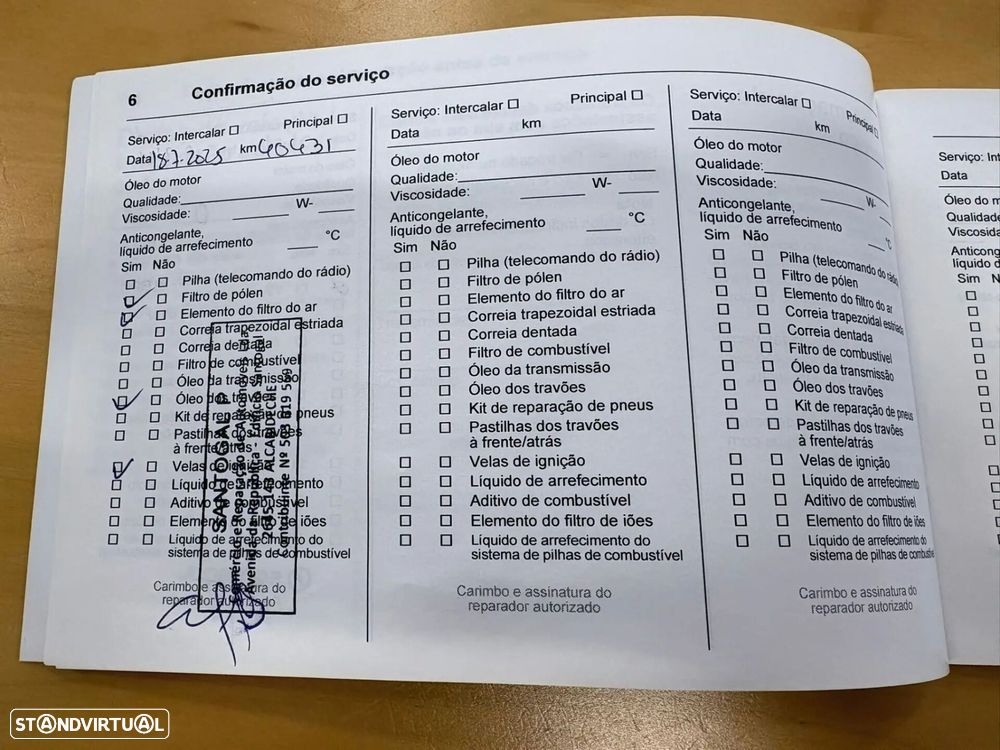 6
Confirmação do serviço
Serviço: Intercalar
Principal
Data 18.7.2025
km 40431
Óleo do motor
Qualidade:
Viscosidade:
W-
Anticongelante,
líquido de arrefecimento
°C
Sim Não
Pilha (telecomando do rádio)
Filtro de pólen
Elemento do filtro do ar
Correia trapezoidal estriada
Correia dentada
Filtro de combustível
Óleo da transmissão
Óleo dos travões
Kit de reparação de pneus
Pastilhas dos travões
à frente/atrás
Velas de ignição
Líquido de arrefecimento
Aditivo de combustível
Elemento do filtro de iões
Líquido de arrefecimento do
sistema de pilhas de combustível
Carimbo e assinatura do
reparador autorizado
SANTOGAL
Comércio e Reparação de
Avenida da República - Edifício Santogal
2645-143 ALCABIDECHE
Contribuinte Nº 503 819 5
Serviço: Intercalar
Principal
Data
km
Óleo do motor
Qualidade:
Viscosidade:
W-
Anticongelante,
líquido de arrefecimento
°C
Sim Não
Pilha (telecomando do rádio)
Filtro de pólen
Elemento do filtro do ar
Correia trapezoidal estriada
Correia dentada
Filtro de combustível
Óleo da transmissão
Óleo dos travões
Kit de reparação de pneus
Pastilhas dos travões
à frente/atrás
Velas de ignição
Líquido de arrefecimento
Aditivo de combustível
Elemento do filtro de iões
Líquido de arrefecimento do
sistema de pilhas de combustível
Carimbo e assinatura do
reparador autorizado
Serviço: Intercalar
Principal
Data
km
Óleo do motor
Qualidade:
Viscosidade:
W-
Anticongelante,
líquido de arrefecimento
°C
Sim Não
Pilha (telecomando do rádio)
Filtro de pólen
Elemento do filtro do ar
Correia trapezoidal estriada
Correia dentada
Filtro de combustível
Óleo da transmissão
Óleo dos travões
Kit de reparação de pneus
Pastilhas dos travões
à frente/atrás
Velas de ignição
Líquido de arrefecimento
Aditivo de combustível
Elemento do filtro de iões
Líquido de arrefecimento do
sistema de pilhas de combustível
Carimbo e assinatura do
reparador autorizado
Serviço: Int
Data
Óleo do m
Qualidade
Viscosida
Anticong
líquido d
Sim N
STANDVIRTUAL